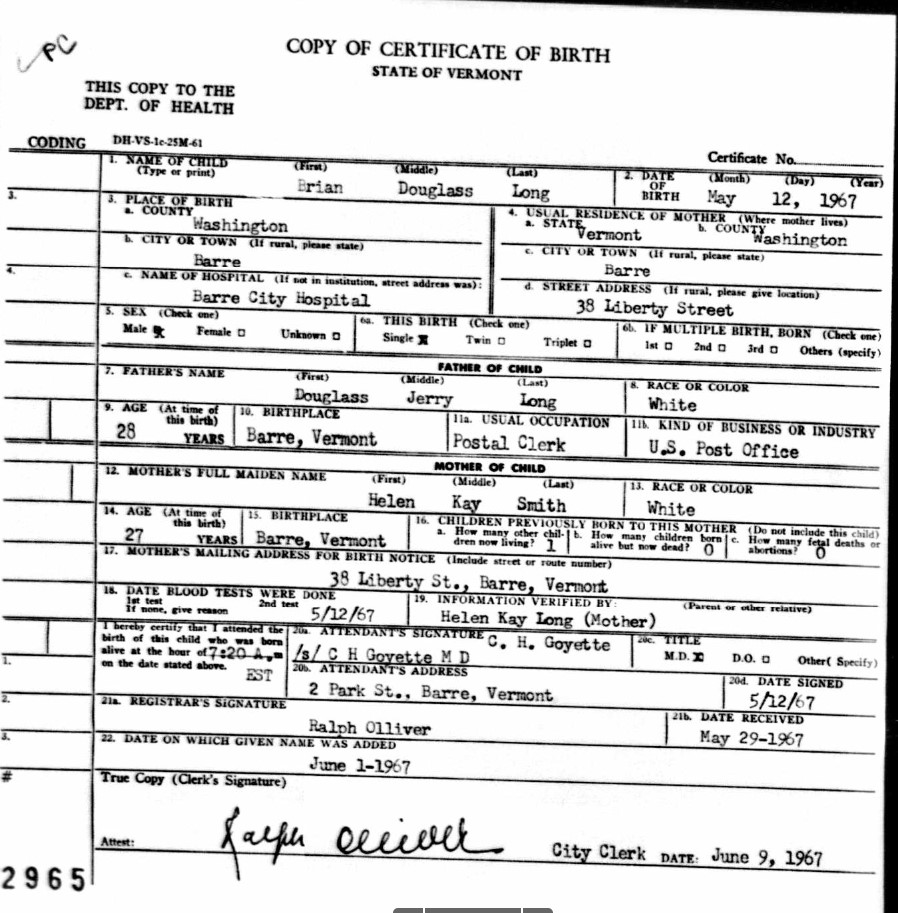 PC
COPY OF CERTIFICATE OF BIRTH
STATE OF VERMONT
THIS COPY TO THE
DEPT. OF HEALTH
CODING DH-VS-1c-25M-61
Certificate No.
1. NAME OF CHILD (First) (Middle) (Last)
(Type or print) Brian Douglass Long
2. DATE OF BIRTH (Month) (Day) (Year)
May 12, 1967
3.
3. PLACE OF BIRTH
a. COUNTY
Washington
b. CITY OR TOWN (If rural, please state)
Barre
4.
c. NAME OF HOSPITAL (If not in institution, street address was):
Barre City Hospital
4. USUAL RESIDENCE OF MOTHER (Where mother lives)
a. STATE Vermont b. COUNTY Washington
c. CITY OR TOWN (If rural, please state)
Barre
d. STREET ADDRESS (If rural, please give location)
38 Liberty Street
5. SEX (Check one)
Male Female Unknown
6a. THIS BIRTH (Check one)
Single Twin Triplet
6b. IF MULTIPLE BIRTH, BORN (Check one)
1st 2nd 3rd Others (specify)
FATHER OF CHILD
7. FATHER'S NAME (First) (Middle) (Last)
Douglass Jerry Long
8. RACE OR COLOR
White
9. AGE (At time of this birth)
28 YEARS
10. BIRTHPLACE
Barre, Vermont
11a. USUAL OCCUPATION
Postal Clerk
11b. KIND OF BUSINESS OR INDUSTRY
U.S. Post Office
MOTHER OF CHILD
12. MOTHER'S FULL MAIDEN NAME (First) (Middle) (Last)
Helen Kay Smith
13. RACE OR COLOR
White
14. AGE (At time of this birth)
27 YEARS
15. BIRTHPLACE
Barre, Vermont
16. CHILDREN PREVIOUSLY BORN TO THIS MOTHER (Do not include this child)
a. How many other children now living? 1
b. How many children born alive but now dead? 0
c. How many fetal deaths or abortions? 0
17. MOTHER'S MAILING ADDRESS FOR BIRTH NOTICE (Include street or route number)
38 Liberty St., Barre, Vermont
18. DATE BLOOD TESTS WERE DONE
1st test 2nd test
If none, give reason 5/12/67
19. INFORMATION VERIFIED BY: (Parent or other relative)
Helen Kay Long (Mother)
I hereby certify that I attended the
birth of this child who was born
alive at the hour of 7:20 A.m
on the date stated above.
EST
20a. ATTENDANT'S SIGNATURE C. H. Goyette
/s/ C H Goyette M D
20c. TITLE
M.D. D.O. Other( Specify)
20b. ATTENDANT'S ADDRESS
2 Park St., Barre, Vermont
20d. DATE SIGNED
5/12/67
1.
2.
21a. REGISTRAR'S SIGNATURE
Ralph Olliver
21b. DATE RECEIVED
May 29-1967
3.
22. DATE ON WHICH GIVEN NAME WAS ADDED
June 1-1967
#
True Copy (Clerk's Signature)
Attest: Ralph Olliver City Clerk DATE: June 9, 1967
2965